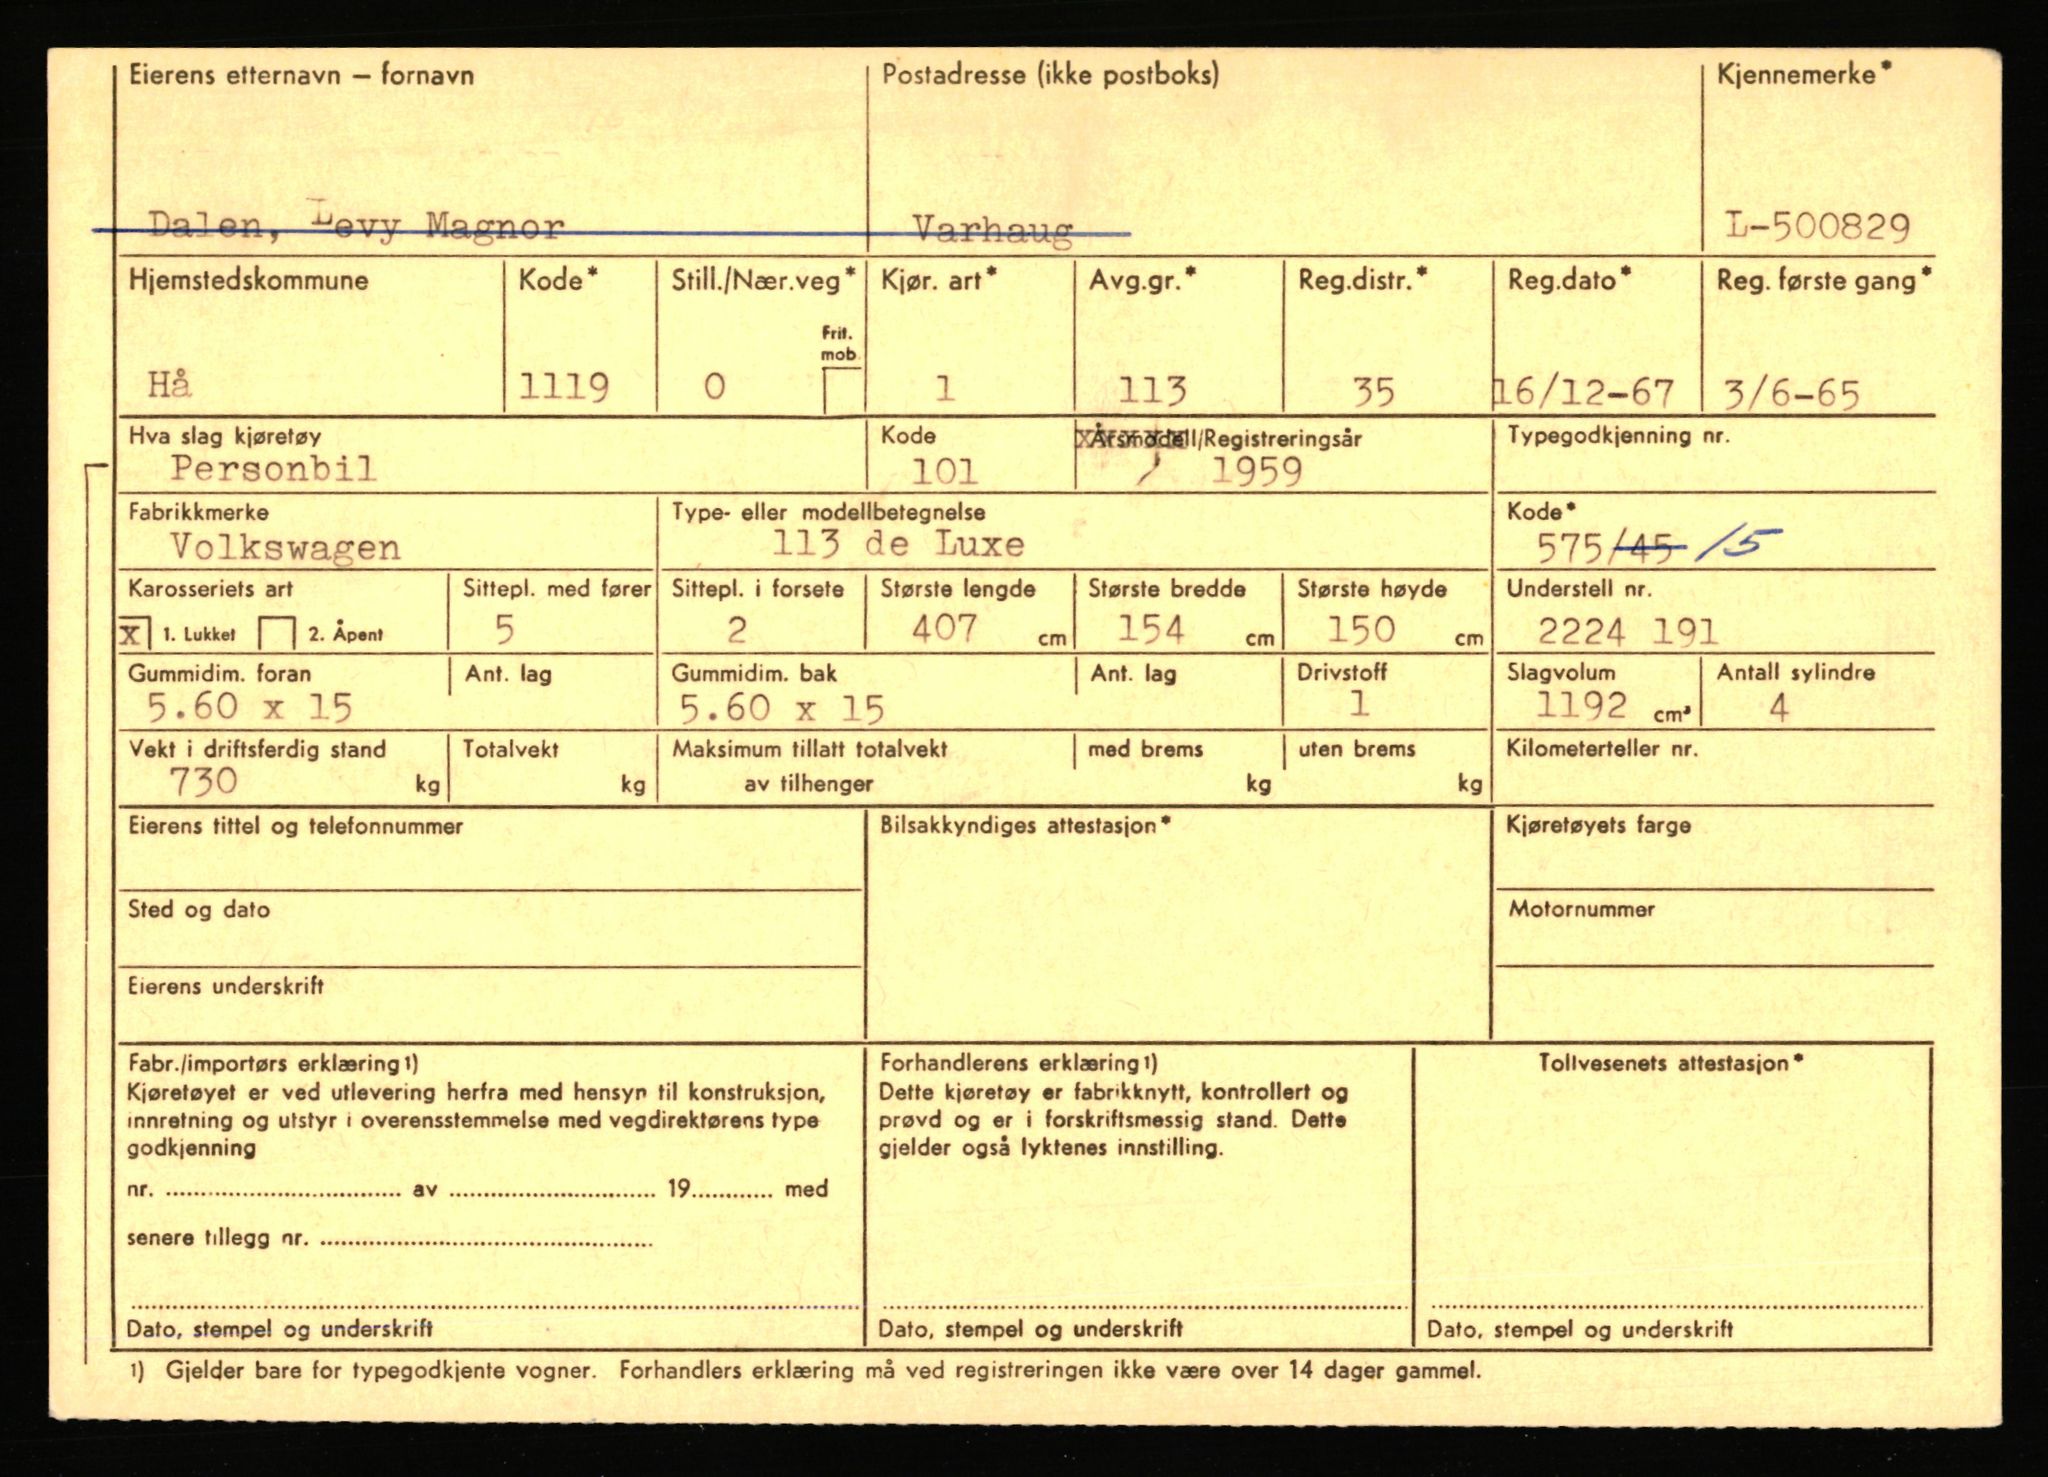 Eierens etternavn – fornavn Postadresse (ikke postboks) Kjennemerke*
Dalen, Levy Magnor Varhaug L-500829
Hjemstedskommune Kode* Still./Nær.veg* Kjør. art* Avg.gr.* Reg.distr.* Reg.dato* Reg. første gang*
Frit.
mob.
Hå 1119 0 1 113 35 16/12-67 3/6-65
Hva slag kjøretøy Kode Årsmodell/Registreringsår Typegodkjenning nr.
Personbil 101 1959
Fabrikkmerke Type- eller modellbetegnelse Kode*
Volkswagen 113 de Luxe 575/45 /5
Karosseriets art Sittepl. med fører Sittepl. i forsete Største lengde Største bredde Største høyde Understell nr.
X 1. Lukket 2. Åpent 5 2 407 cm 154 cm 150 cm 2224 191
Gummidim. foran Ant. lag Gummidim. bak Ant. lag Drivstoff Slagvolum Antall sylindre
5.60 x 15 5.60 x 15 1 1192 cm³ 4
Vekt i driftsferdig stand Totalvekt Maksimum tillatt totalvekt med brems uten brems Kilometerteller nr.
730 kg kg av tilhenger kg kg
Eierens tittel og telefonnummer Bilsakkyndiges attestasjon* Kjøretøyets farge
Sted og dato Motornummer
Eierens underskrift
Fabr./importørs erklæring1) Forhandlerens erklæring1) Tollvesenets attestasjon*
Kjøretøyet er ved utlevering herfra med hensyn til konstruksjon, Dette kjøretøy er fabrikknytt, kontrollert og
innretning og utstyr i overensstemmelse med vegdirektørens type prøvd og er i forskriftsmessig stand. Dette
godkjenning gjelder også lyktenes innstilling.
nr. .............................. av .......................... 19.......... med
senere tillegg nr. ..........................................
Dato, stempel og underskrift Dato, stempel og underskrift Dato, stempel og underskrift
1) Gjelder bare for typegodkjente vogner. Forhandlers erklæring må ved registreringen ikke være over 14 dager gammel.